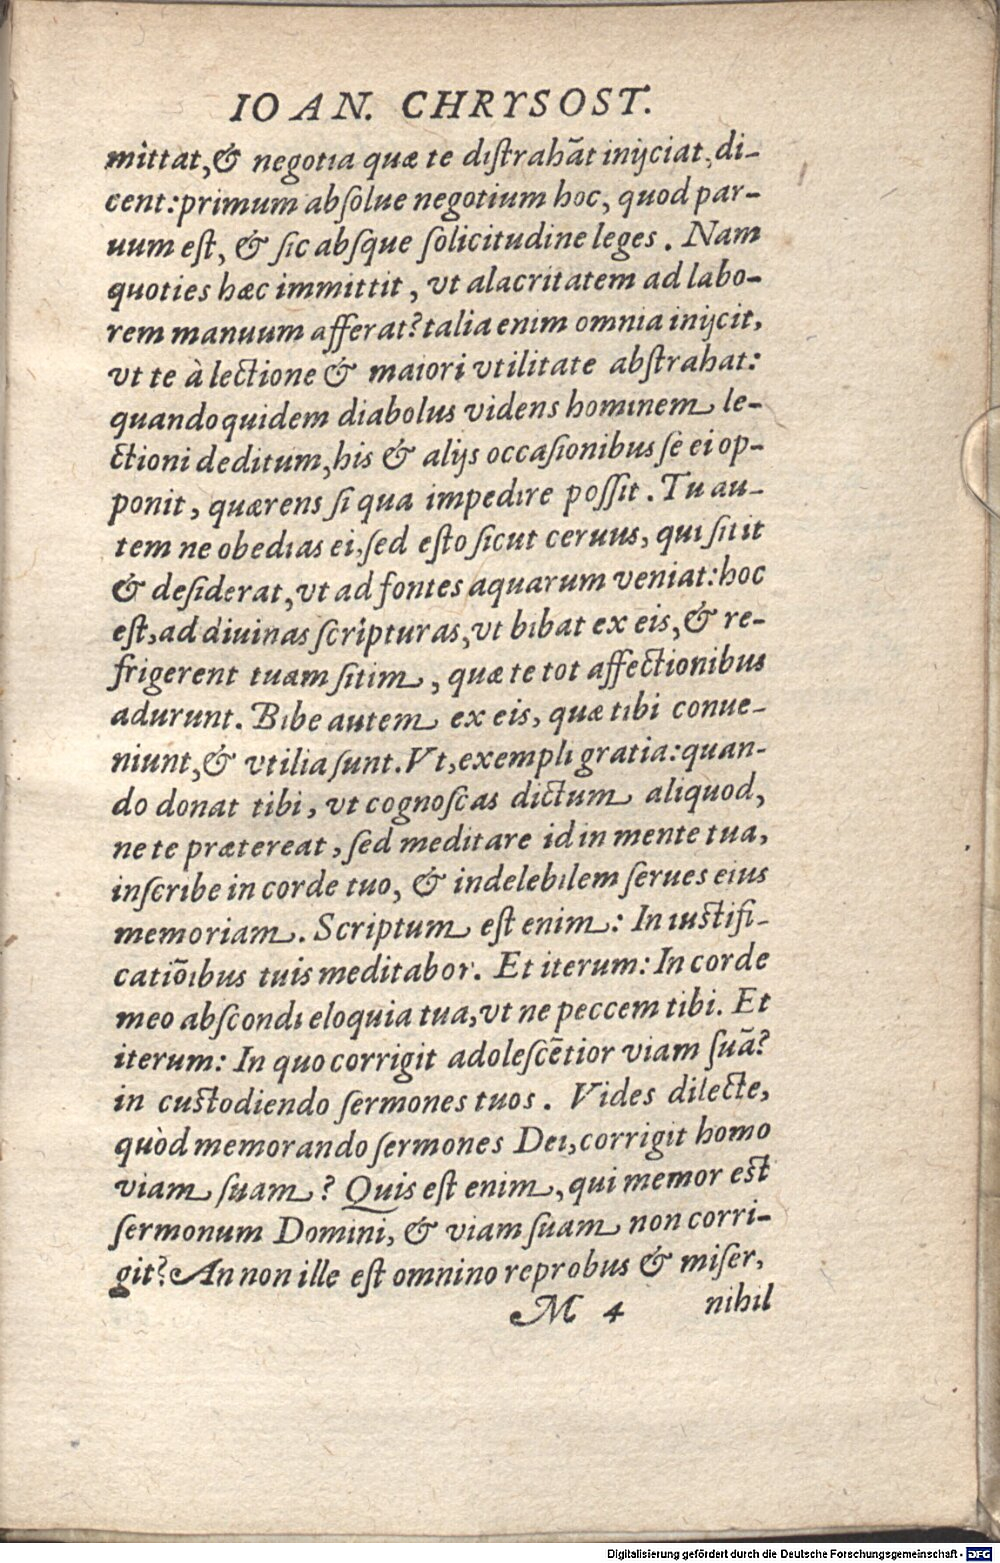 IOAN. CHRYSOST.
mittat, & negotia quæ te distrahãt inijciat, di-
cent: primum absolue negotium hoc, quod par-
uum est, & sic absque solicitudine leges. Nam
quoties hæc immittit, vt alacritatem ad labo-
rem manuum afferat? talia enim omnia inijcit,
vt te à lectione & maiori vtilitate abstrahat:
quandoquidem diabolus videns hominem le-
ctioni deditum, his & alijs occasionibus se ei op-
ponit, quærens si qua impedire possit. Tu au-
tem ne obedias ei, sed esto sicut ceruus, qui sitit
& desiderat, vt ad fontes aquarum veniat: hoc
est, ad diuinas scripturas, vt bibat ex eis, & re-
frigerent tuam sitim, quæ te tot affectionibus
adurunt. Bibe autem ex eis, quæ tibi conue-
niunt, & vtilia sunt. Vt, exempli gratia: quan-
do donat tibi, vt cognoscas dictum aliquod,
ne te prætereat, sed meditare id in mente tua,
inscribe in corde tuo, & indelebilem serues eius
memoriam. Scriptum est enim: In iustifi-
catiõibus tuis meditabor. Et iterum: In corde
meo abscondi eloquia tua, vt ne peccem tibi. Et
iterum: In quo corrigit adolescẽtior viam suã?
in custodiendo sermones tuos. Vides dilecte,
quòd memorando sermones Dei, corrigit homo
viam suam? Quis est enim, qui memor est
sermonum Domini, & viam suam non corri-
git? An non ille est omnino reprobus & miser,
M 4 nihil
Digitalisierung gefördert durch die Deutsche Forschungsgemeinschaft - DFG